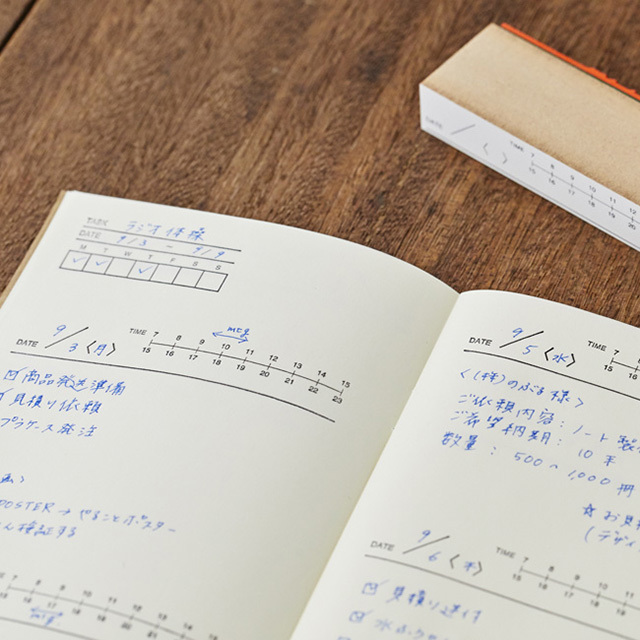 TASK ラジオ体操
DATE 9/3 ~ 9/9
M T W T F S S
DATE 9/3〈月〉
TIME 7 8 9 10 11 12 13 14 15
15 16 17 18 19 20 21 22 23
mtg
商品発送準備
見積り依頼
プラケース発注
POSTER→やることポスター
検証する
DATE 9/5〈水〉
TIME 7
15 16
〈(株)のぶる様〉
ご依頼内容:ノート製
ご希望納期:10月
数量:500~1,000冊
DATE 9/6〈木〉
TIME 7 8 9 10 11
15 16 17 18 19
見積り送付
DATE / 〈 〉
TIME 7 8 9 10 11 12
15 16 17 18 19 20